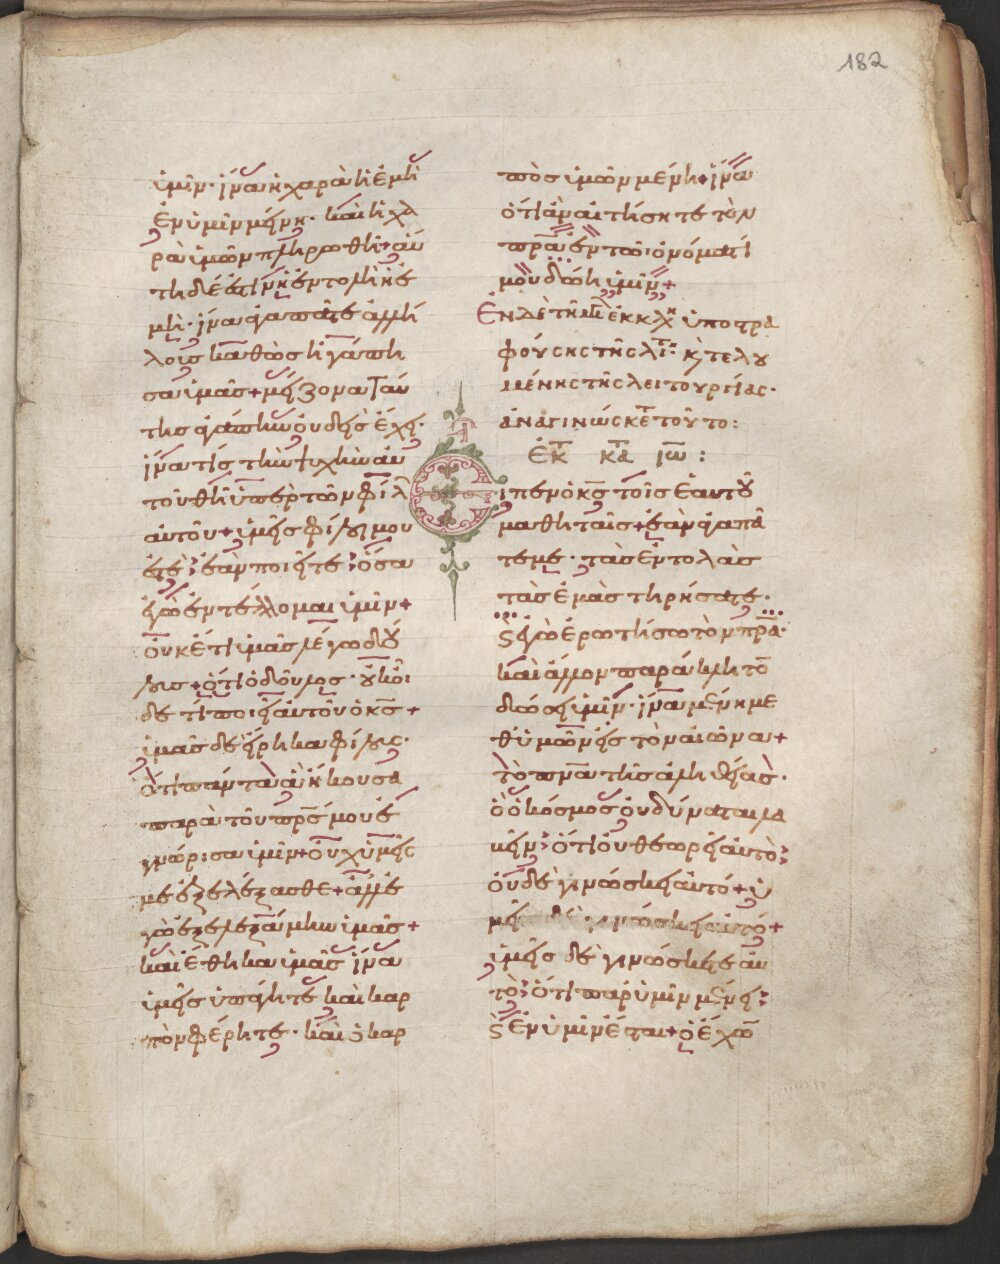 182
ὑμῖν· ἵνα ἡ χαρὰ ἡ ἐμὴ
ἐν ὑμῖν μένη· καὶ ἡ χα
ρὰ ὑμῶν πληρωθῆ + αὕ
τη δέ ἐστιν ἡ ἐντολὴ ἡ ἐ
μή· ἵνα ἀγαπᾶτε ἀλλή
λους καθὼς ἠγάπη
σα ὑμᾶς + μείζονα ταύ
της ἀγάπην οὐδεὶς ἔχει·
ἵνα τις τὴν ψυχὴν αὐ
τοῦ θῆ ὑπὲρ τῶν φίλ
αὐτοῦ + ὑμεῖς φίλοι μου
ἐστέ; ἐὰν ποιεῖτε; ὅσα
ἐγὼ ἐντέλλομαι ὑμῖν +
οὐκέτι ὑμᾶς λέγω δού
λους + ὅτι ὁ δοῦλος· οὐκ οἶ
δε τί ποιεῖ αὐτοῦ ὁ κς +
ὑμᾶς δὲ εἴρηκα φίλους·
ὅτι πάντα ἃ ἤκουσα
παρὰ τοῦ πρς μου ἐ
γνώρισα ὑμῖν + οὐχ ὑμεῖς
με ἐξελέξασθε + ἀλλ' ἐ
γὼ ἐξελεξάμην ὑμᾶς +
καὶ ἔθηκα ὑμᾶς ἵνα
ὑμεῖς ὑπάγητε καὶ καρ
πὸν φέρητε· καὶ ὁ καρ
πὸς ὑμῶν μένη + ἵνα
ὅτι ἂν αἰτήσητε τὸν
πρα ἐν τῶ ὀνόματί
μου δώη ὑμῖν +
ὑποστρα
φούσης τῆς λιτ· κ τελου
μένης τῆς λειτουργίας·
ἀναγινώσκετ τοῦτο:
ἐκ τ κατ ιω:
Εἶπεν ὁ κς τοῖς ἑαυτοῦ
μαθηταῖς + ἐὰν ἀγαπᾶ
τέ με· τὰς ἐντολὰς
τὰς ἐμὰς τηρήσατε·
ϛ ἐγὼ ἐρωτήσω τὸν πρα·
καὶ ἄλλον παράκλητο
δώσει ὑμῖν· ἵνα μένη με
θ' ὑμῶν εἰς τὸν αἰῶνα +
τὸ πνα τῆς ἀληθείας·
ὃ ὁ κόσμος οὐ δύναται λα
βεῖν; ὅτι οὐ θεωρεῖ αὐτό;
οὐδὲ γινώσκει αὐτό + ὑ
μεῖς δὲ γινώσκει αὐτό +
ὑμεῖς δὲ γινώσκετε αὐ
τό; ὅτι παρ' ὑμῖν μένει;
ϛ ἐν ὑμῖν ἔσται + ὁ ἔχω